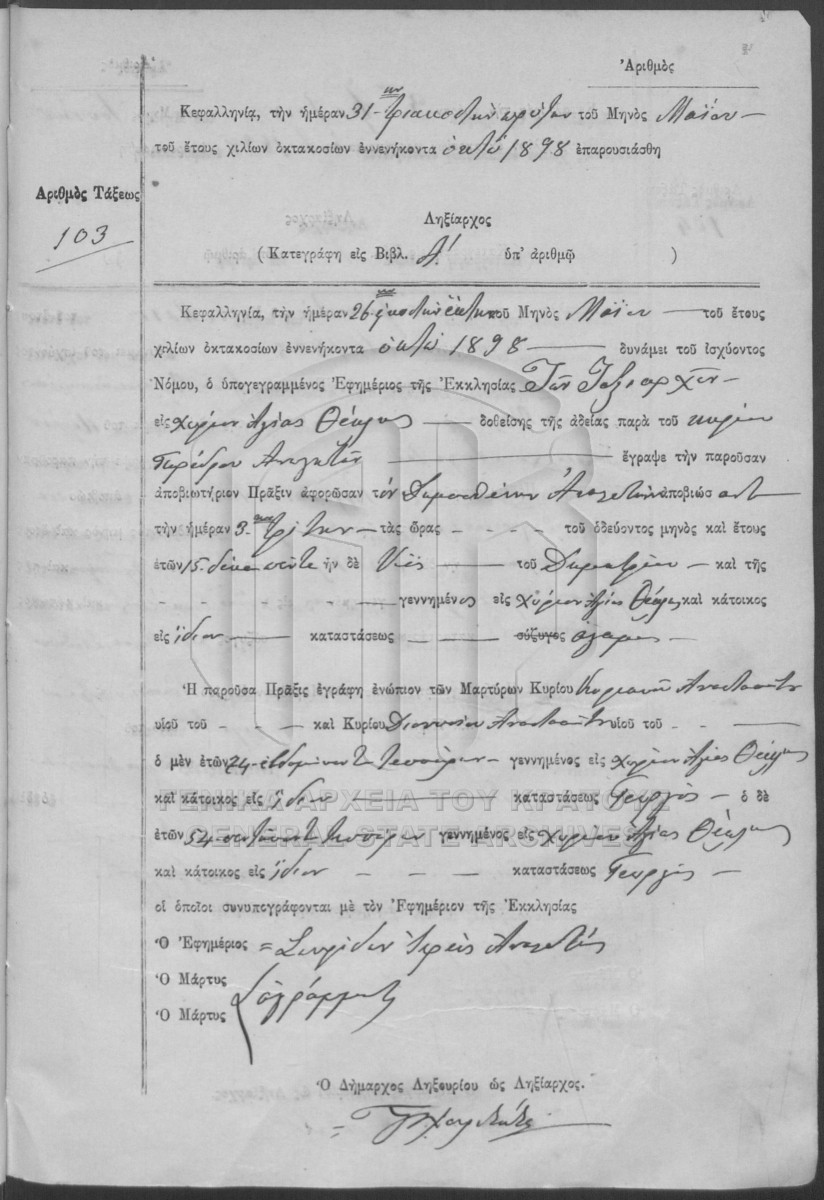 Ἀριθμὸς
Κεφαλληνία, τὴν ἡμέραν 31ην τριακοστὴν πρώτην τοῦ Μηνὸς Μαΐου —
τοῦ ἔτους χιλίων ὀκτακοσίων ἐννενήκοντα ὀκτὼ 1898 ἐπαρουσιάσθη
Ἀριθμὸς Τάξεως
103
Ληξίαρχος
(Κατεγράφη εἰς Βιβλ. Α' ὑπ' ἀριθμῷ )
Κεφαλληνία, τὴν ἡμέραν 26 εἰκοστὴν ἕκτην τοῦ Μηνὸς Μαΐου — τοῦ ἔτους
χιλίων ὀκτακοσίων ἐννενήκοντα ὀκτὼ 1898 — δυνάμει τοῦ ἰσχύοντος
Νόμου, ὁ ὑπογεγραμμένος Ἐφημέριος τῆς Ἐκκλησίας Τῶν Ταξιαρχῶν —
εἰς χωρίον Ἁγίας Θέκλης — δοθείσης τῆς ἀδείας παρὰ τοῦ κυρίου
Παρέδρου — ἔγραψε τὴν παροῦσαν
ἀποβιωτήριον Πρᾶξιν ἀφορῶσαν τὸν Δημοσθένην ἀποβιώσαντ
τὴν ἡμέραν 3 τρίτην — τὰς ὥρας - - - - τοῦ ὁδεύοντος μηνὸς καὶ ἔτους
ἐτῶν 15 δέκα πέντε ἦν δὲ Υἱὸς — τοῦ Δημητρίου — καὶ τῆς
- - - - — γεννημένος εἰς χωρίον Ἁγίας Θέκλης καὶ κάτοικος
εἰς ἴδιον — καταστάσεως — — σύζυγος ἄγαμος —
Ἡ παροῦσα Πρᾶξις ἐγράφη ἐνώπιον τῶν Μαρτύρων Κυρίου
υἱοῦ τοῦ - - - καὶ Κυρίου Διονυσίου υἱοῦ τοῦ - - —
ὁ μὲν ἐτῶν 74 ἑβδομήκοντα τεσσάρων — γεννημένος εἰς χωρίον Ἁγίας Θέκλης
καὶ κάτοικος εἰς ἴδιον — καταστάσεως Γεωργὸς — ὁ δὲ
ΓΕΝΙΚΑ ΑΡΧΕΙΑ ΤΟΥ ΚΡΑΤΟΥΣ
GENERAL STATE ARCHIVES
ἐτῶν 54 πεντήκοντα τεσσάρων γεννημένος εἰς χωρίον Ἁγίας Θέκλης
καὶ κάτοικος εἰς ἴδιον - - - καταστάσεως Γεωργὸς —
οἱ ὁποῖοι συνυπογράφονται μὲ τὸν Ἐφημέριον τῆς Ἐκκλησίας
Ὁ Ἐφημέριος = Σπυρίδων Ἱερεὺς
Ὁ Μάρτυς
ἀγράμματοι
Ὁ Μάρτυς
Ὁ Δήμαρχος Ληξουρίου ὡς Ληξίαρχος.